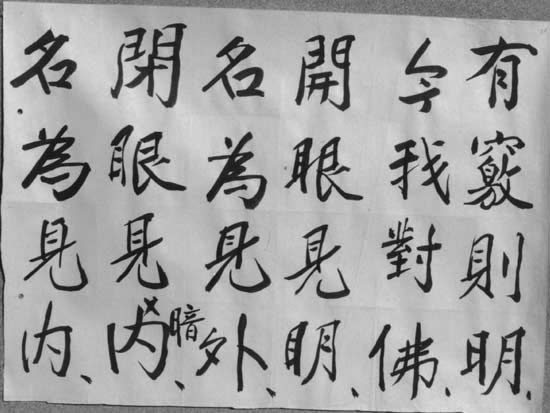 有竅則明、
今我對佛、
開眼見明、
名為見外、
閉眼見内暗、
名為見内、